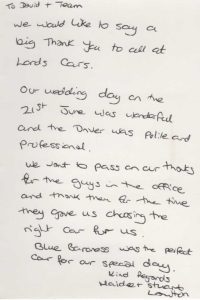 To David + Team
we would like to say a
big Thank you to all at
Lords Cars.
Our wedding day on the
21st June was wonderful
and the Driver was Polite and
professional.
we want to pass on our thanks
for the guys in the office
and thank them for the time
they gave us chosing the
right Car for us.
Blue Baroness was the perfect
Car for our special day.
Kind Regards
Stuart
Lawton